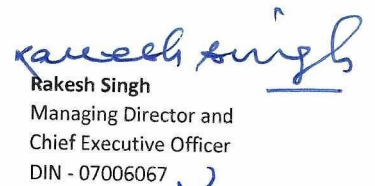 Rakesh Singh
Rakesh Singh
Managing Director and
Chief Executive Officer
DIN - 07006067